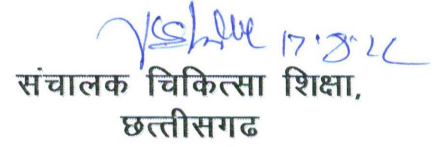 17.8.22
संचालक चिकित्सा शिक्षा,
छत्तीसगढ